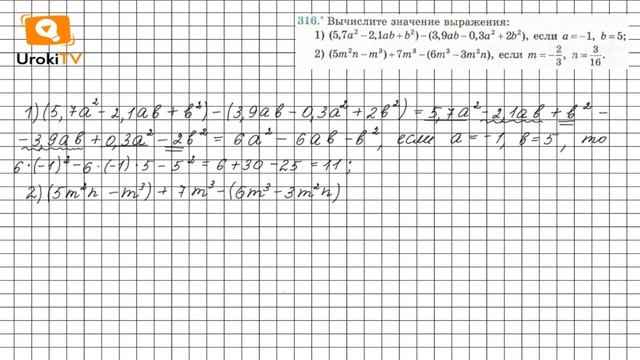 UrokiTV
316.* Вычислите значение выражения:
1) (5,7a² − 2,1ab + b²) − (3,9ab − 0,3a² + 2b²), если a = −1, b = 5;
2) (5m²n − m³) + 7m³ − (6m³ − 3m²n), если m = −2/3, n = 3/16.
1) (5,7a² − 2,1ab + b²) − (3,9ab − 0,3a² + 2b²) = 5,7a² − 2,1ab + b² −
− 3,9ab + 0,3a² − 2b² = 6a² − 6ab − b², если a = −1, b = 5, то
6·(−1)² − 6·(−1)·5 − 5² = 6 + 30 − 25 = 11;
2) (5m²n − m³) + 7m³ − (6m³ − 3m²n)